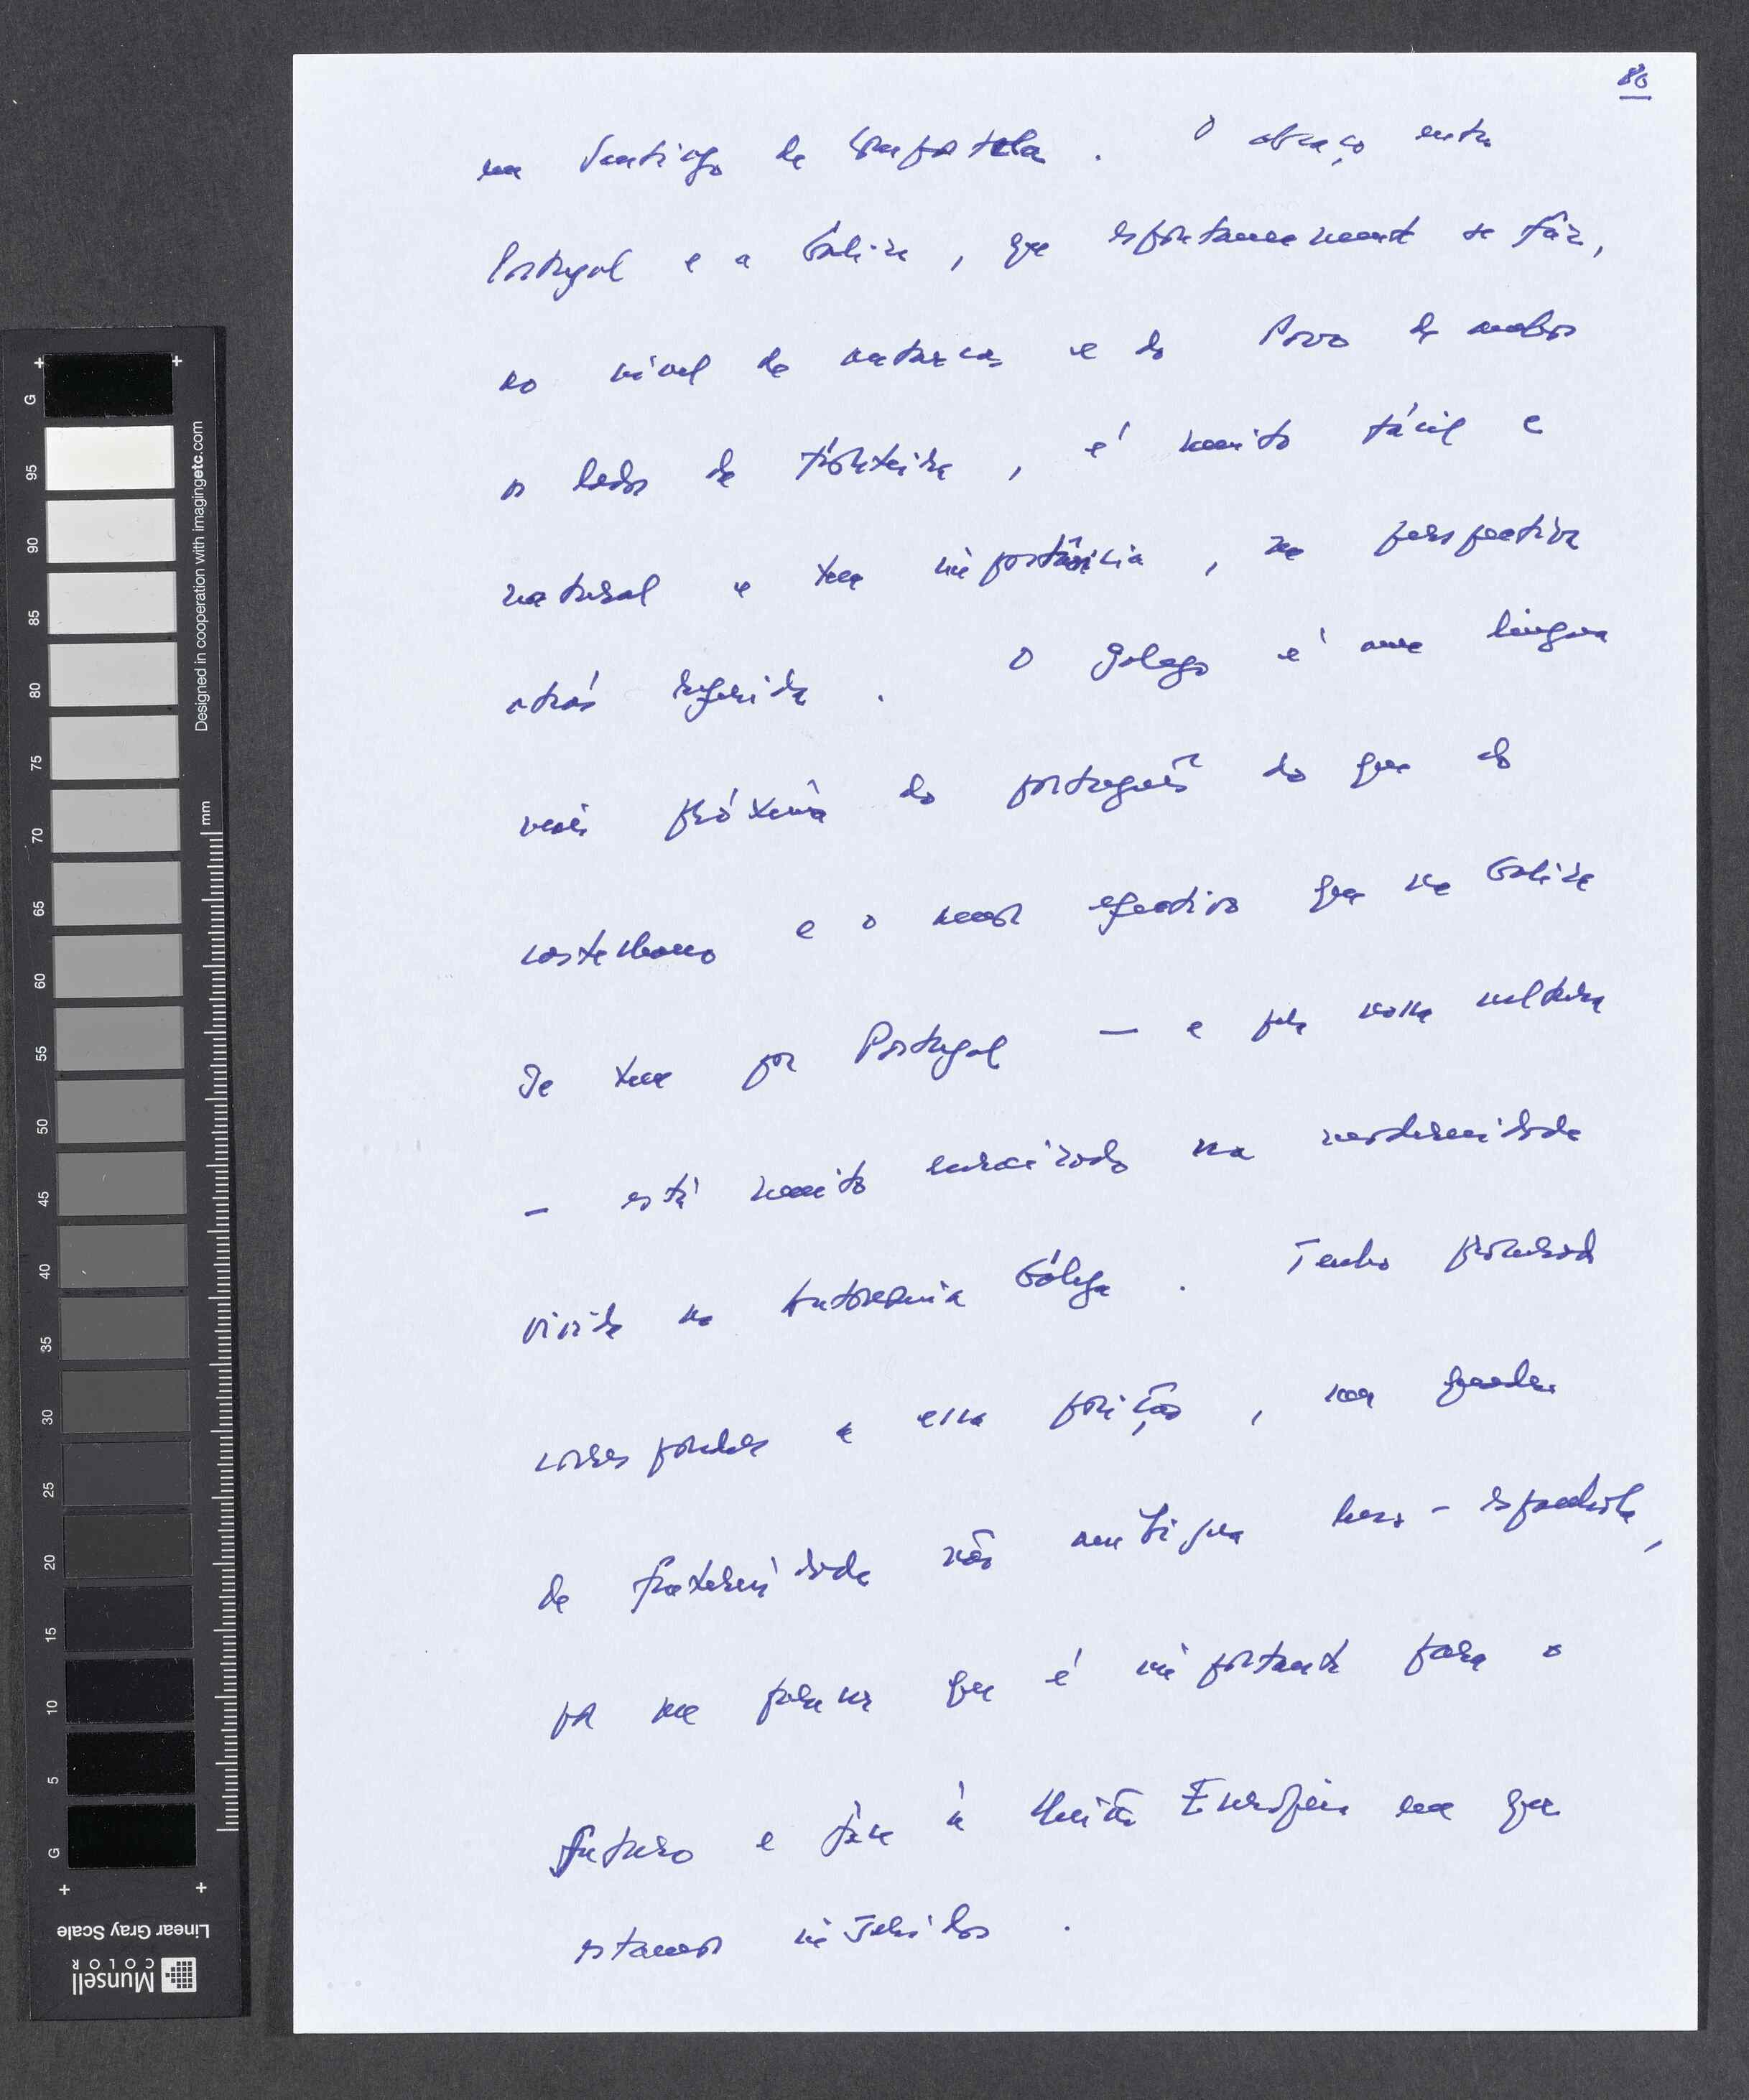 80
em Santiago de Compostela. O abraço entre
Portugal e a Galiza, que espontaneamente se faz,
ao nível da natureza e do Povo de ambos
os lados da fronteira, é muito fácil e
natural e tem importância, na perspectiva
atrás referida. O galego é uma língua
mais próxima do português do que do
castelhano e o amor efectivo que na Galiza
se tem por Portugal — e pela nossa cultura
— está muito enraizado na modernidade
vivida na Autonomia Gálega. Tenho procurado
corresponder a essa posição, com
de fraternidade não antigua luso-espanhola,
por me parecer que é importante para o
futuro e face à União Europeia em que
estamos inseridos.
G 95 90 85 80 75 70 65 60 55 50 45 40 35 30 25 20 15 10 5 G
Designed in cooperation with imagingetc.com
mm
Linear Gray Scale
Munsell
COLOR